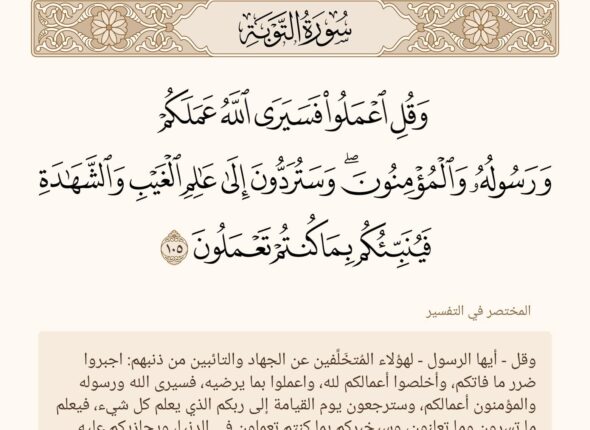 سُورَةُ التَّوْبَةِ
وَقُلِ ٱعْمَلُوا۟ فَسَيَرَى ٱللَّهُ عَمَلَكُمْ
وَرَسُولُهُۥ وَٱلْمُؤْمِنُونَ ۖ وَسَتُرَدُّونَ إِلَىٰ عَٰلِمِ ٱلْغَيْبِ وَٱلشَّهَٰدَةِ
فَيُنَبِّئُكُم بِمَا كُنتُمْ تَعْمَلُونَ ١٠٥
المختصر في التفسير
وقل - أيها الرسول - لهؤلاء المُتخَلِّفين عن الجهاد والتائبين من ذنبهم: اجبروا
ضرر ما فاتكم، وأخلصوا أعمالكم لله، واعملوا بما يرضيه، فسيرى الله ورسوله
والمؤمنون أعمالكم، وسترجعون يوم القيامة إلى ربكم الذي يعلم كل شيء، فيعلم
ما تسرون وما تعلنون، وسيخبركم بما كنتم تعملون في الدنيا، ويجازيكم عليه